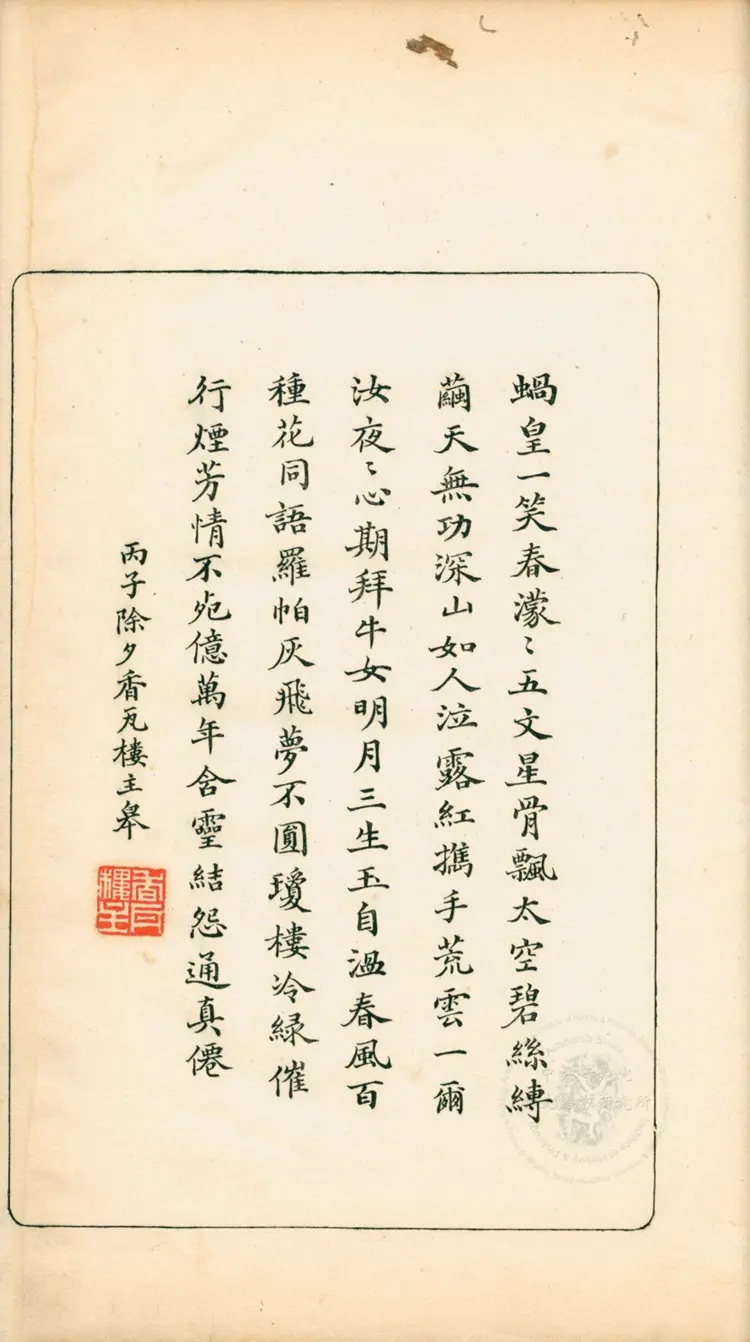 蝸皇一笑春濛〻五文星骨飄太空碧絲縛
繭天無功深山如人泣露紅攜手荒雲一爾
汝夜〻心期拜牛女明月三生玉自溫春風百
種花同語羅帕灰飛夢不圓瓊樓冷綠催
行煙芳情不死億萬年含靈結怨通真僊
丙子除夕香瓦樓主皋
香瓦樓主